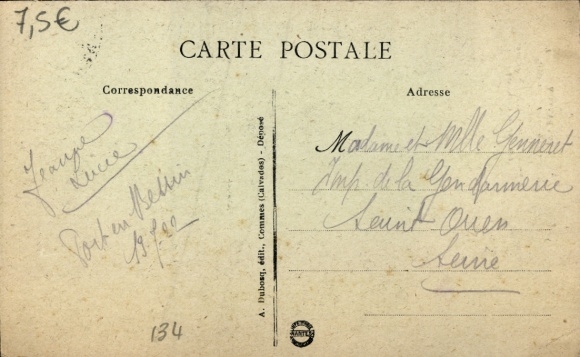 7,5€
CARTE POSTALE
Correspondance
Adresse
Jeanne
Lucie
Port en Bessin
134
A. Dubosq, édit., Commes (Calvados) - Déposé
Madame et Mlle Genneret
Imp. de la Gendarmerie
Saint Ouen
Seine